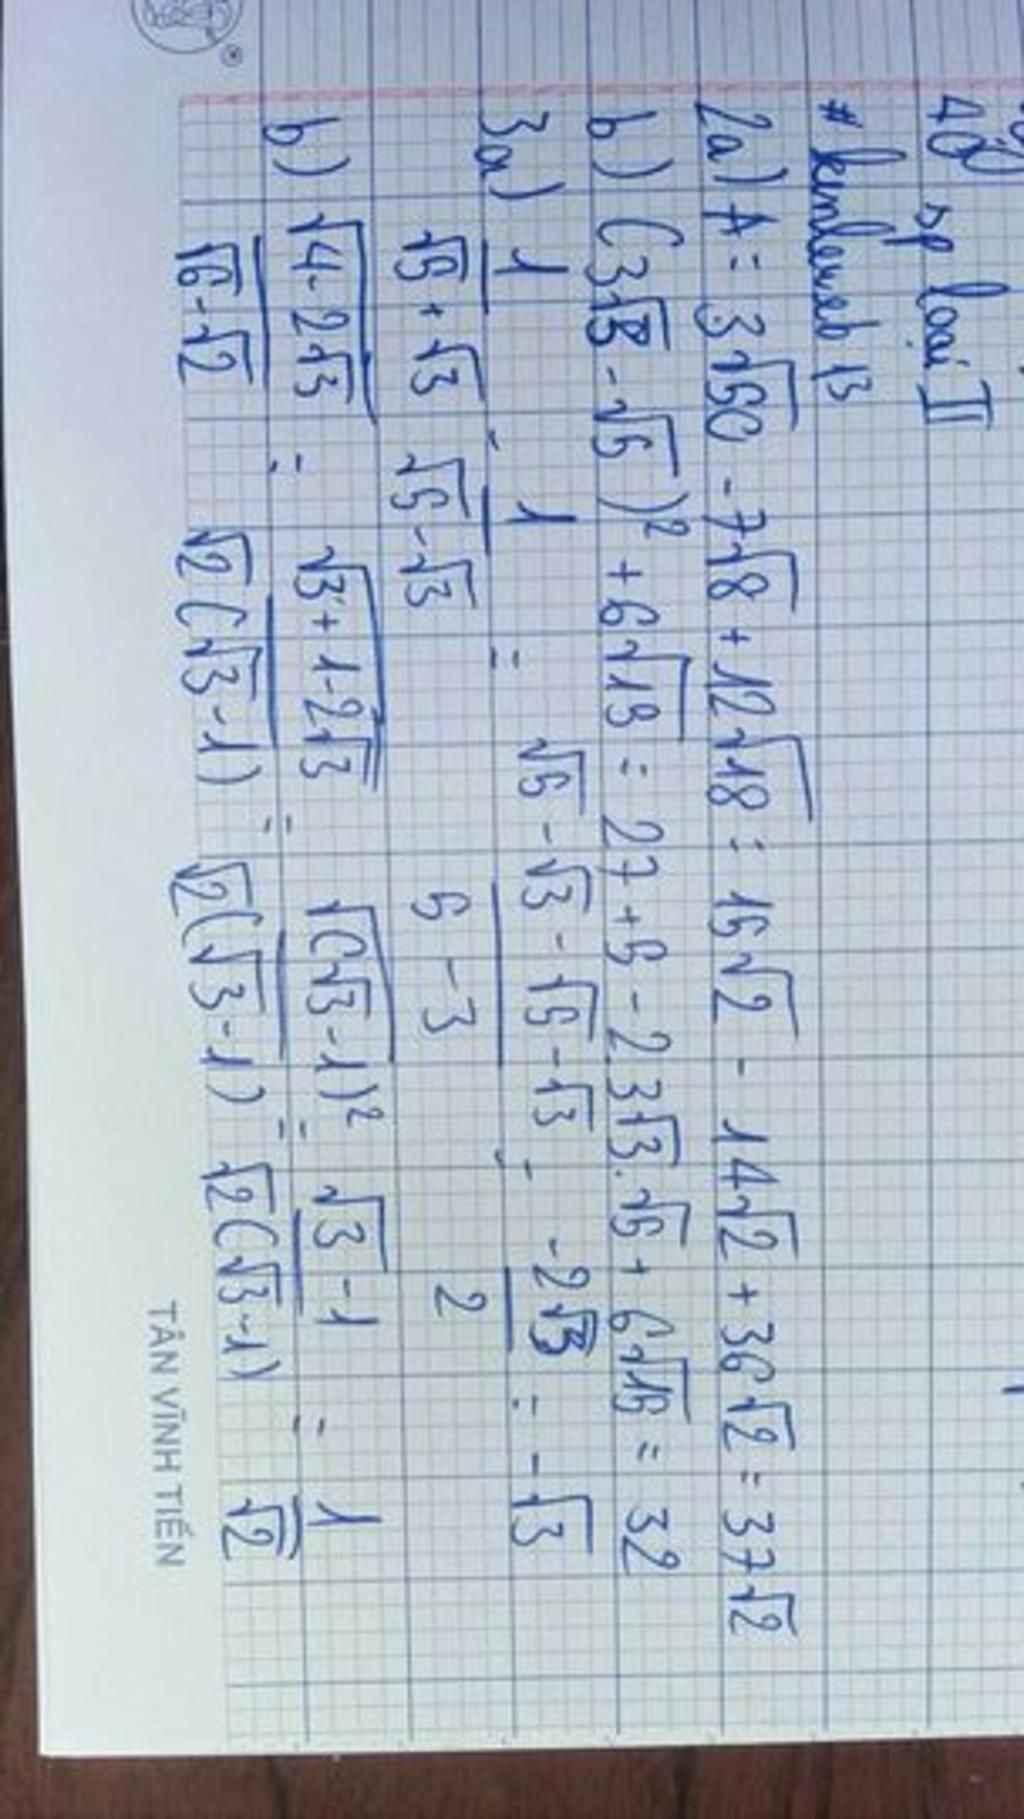 40 sp loại II
# kenleweb 13
2a) A = 3√50 - 7√8 + 12√18 = 15√2 - 14√2 + 36√2 = 37√2
b) (3√3 - √5)² + 6√15 = 27 + 5 - 2.3√3.√5 + 6√15 = 32
3a) 1/(√5 + √3) - 1/(√5 - √3) = (√5 - √3 - √5 - √3)/(5 - 3) = -2√3/2 = -√3
b) √(4 - 2√3)/(√6 - √2) = √(3 + 1 - 2√3)/(√2(√3 - 1)) = √((√3 - 1)²)/(√2(√3 - 1)) = (√3 - 1)/(√2(√3 - 1)) = 1/√2
TÂN VĨNH TIẾN